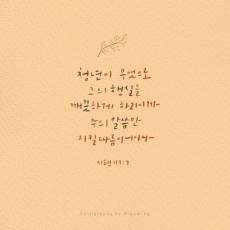 청년이 무엇으로
그의 행실을
깨끗하게 하리이까
주의 말씀만
지킬 따름이니이다
Calligraphy by